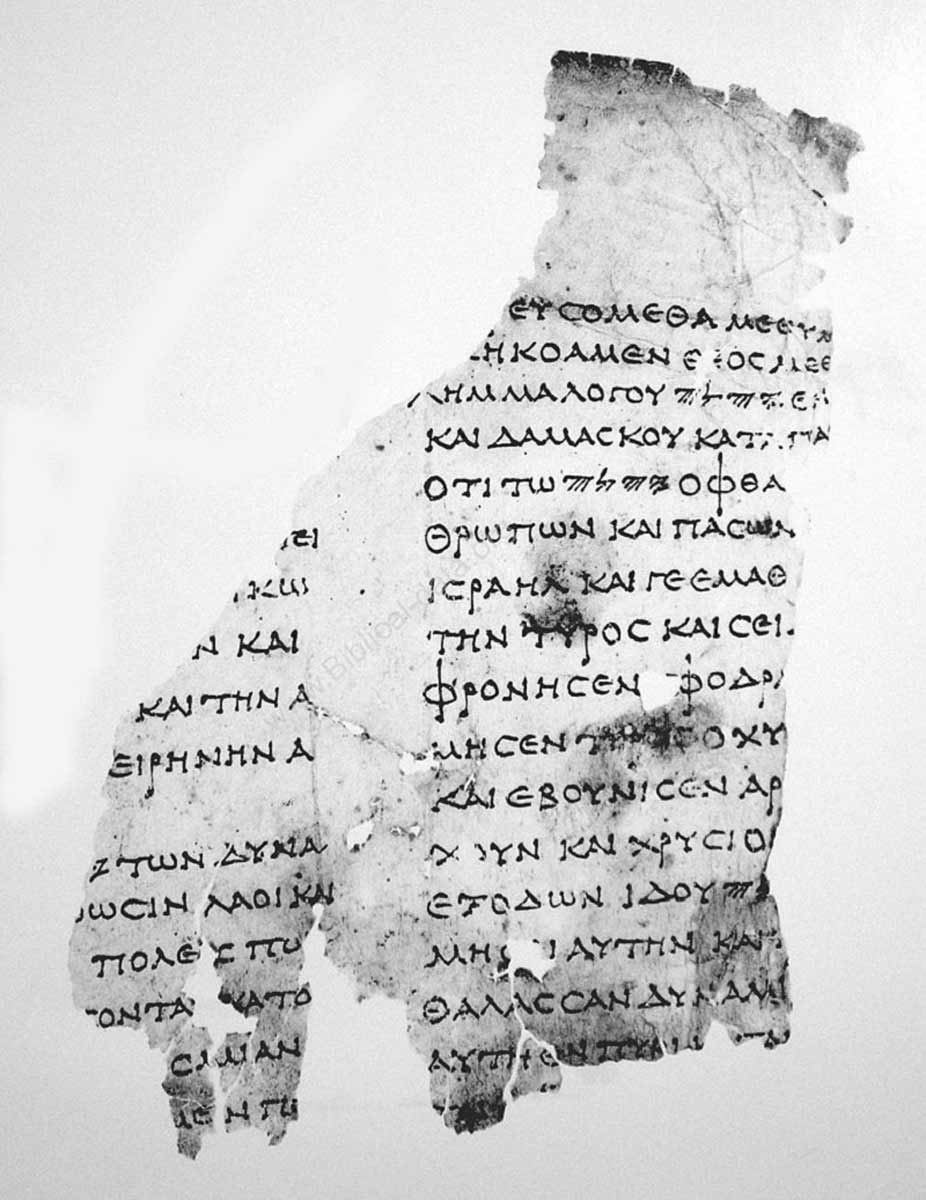 ΕΙ
ΚΩ
Ν ΚΑΙ
ΚΑΙ ΤΗΝ Α
ΕΙΡΗΝΗΝ Α
ΤΩΝ ΔΥΝΑ
ΩϹΙΝ ΛΑΟΙ ΚΑΙ
ΠΟΛΕ Ϲ ΠΟ
ΟΝΤΑ ΚΑΤΟ
ϹΑΜΙΑΝ
ΕΝ ΠΟ
ΕΥϹΟΜΕΘΑ ΜΕΘΥΜ
ΗΚΟΑΜΕΝ Θ ΕΟϹ ΜΕΘ
ΛΗΜΜΑ ΛΟΓΟΥ 𐤉𐤄𐤅𐤄 ΕΝ
ΚΑΙ ΔΑΜΑϹΚΟΥ ΚΑΤΑΠΑ
ΟΤΙ ΤΩ 𐤉𐤄𐤅𐤄 ΟΦΘΑ
ΘΡΩΠΩΝ ΚΑΙ ΠΑϹΩΝ
ΙϹΡΑΗΛ ΚΑΙ ΓΕ ΕΜΑΘ
ΤΗΝ ΤΥΡΟϹ ΚΑΙ ϹΕΙ
ΦΡΟΝΗϹΕΝ ΦΟΔΡΑ
ΜΗϹΕΝ ΤΥΡΟϹ ΟΧΥ
ΚΑΙ ΕΒΟΥΝΙϹΕΝ ΑΡ
Χ ΟΥΝ ΚΑΙ ΧΡΥϹΙΟ
ΕΞΟΔΩΝ ΙΔΟΥ
ΜΗϹ Ι ΑΥΤΗΝ ΚΑΙ
ΘΑΛΑϹϹΑΝ ΔΥΝΑΜΙ
ΑΥΤΗ ΕΝ ΠΥΡΙ